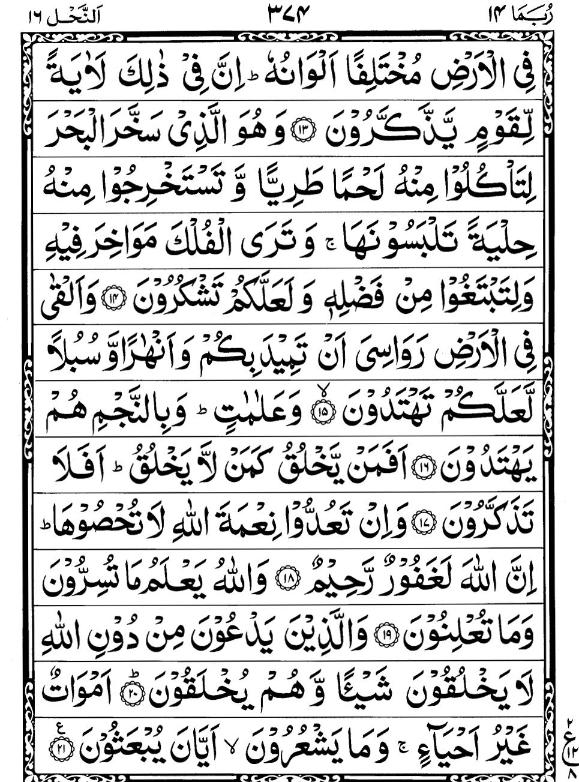 رُبَمَا ۱۴ ۳۷۴ اَلنَّحْل ۱۶
فِي الْاَرْضِ مُخْتَلِفًا اَلْوَانُهٗ ؕ اِنَّ فِيْ ذٰلِكَ لَاٰيَةً
لِّقَوْمٍ يَّذَّكَّرُوْنَ ﴿۱۳﴾ وَهُوَ الَّذِيْ سَخَّرَ الْبَحْرَ
لِتَاْكُلُوْا مِنْهُ لَحْمًا طَرِيًّا وَّ تَسْتَخْرِجُوْا مِنْهُ
حِلْيَةً تَلْبَسُوْنَهَا ۚ وَ تَرَى الْفُلْكَ مَوَاخِرَ فِيْهِ
وَلِتَبْتَغُوْا مِنْ فَضْلِهٖ وَ لَعَلَّكُمْ تَشْكُرُوْنَ ﴿۱۴﴾ وَاَلْقٰى
فِي الْاَرْضِ رَوَاسِيَ اَنْ تَمِيْدَ بِكُمْ وَ اَنْهٰرًا وَّ سُبُلًا
لَّعَلَّكُمْ تَهْتَدُوْنَ ﴿۱۵﴾ۙ وَعَلٰمٰتٍ ؕ وَبِالنَّجْمِ هُمْ
يَهْتَدُوْنَ ﴿۱۶﴾ اَفَمَنْ يَّخْلُقُ كَمَنْ لَّا يَخْلُقُ ؕ اَفَلَا
تَذَكَّرُوْنَ ﴿۱۷﴾ وَاِنْ تَعُدُّوْا نِعْمَةَ اللّٰهِ لَا تُحْصُوْهَا ؕ
اِنَّ اللّٰهَ لَغَفُوْرٌ رَّحِيْمٌ ﴿۱۸﴾ وَاللّٰهُ يَعْلَمُ مَا تُسِرُّوْنَ
وَمَا تُعْلِنُوْنَ ﴿۱۹﴾ وَالَّذِيْنَ يَدْعُوْنَ مِنْ دُوْنِ اللّٰهِ
لَا يَخْلُقُوْنَ شَيْـًٔا وَّ هُمْ يُخْلَقُوْنَ ﴿۲۰﴾ؕ اَمْوَاتٌ
غَيْرُ اَحْيَآءٍ ۚ وَمَا يَشْعُرُوْنَ ۙ اَيَّانَ يُبْعَثُوْنَ ﴿۲۱﴾ع
۲
ع
۱۲
۸